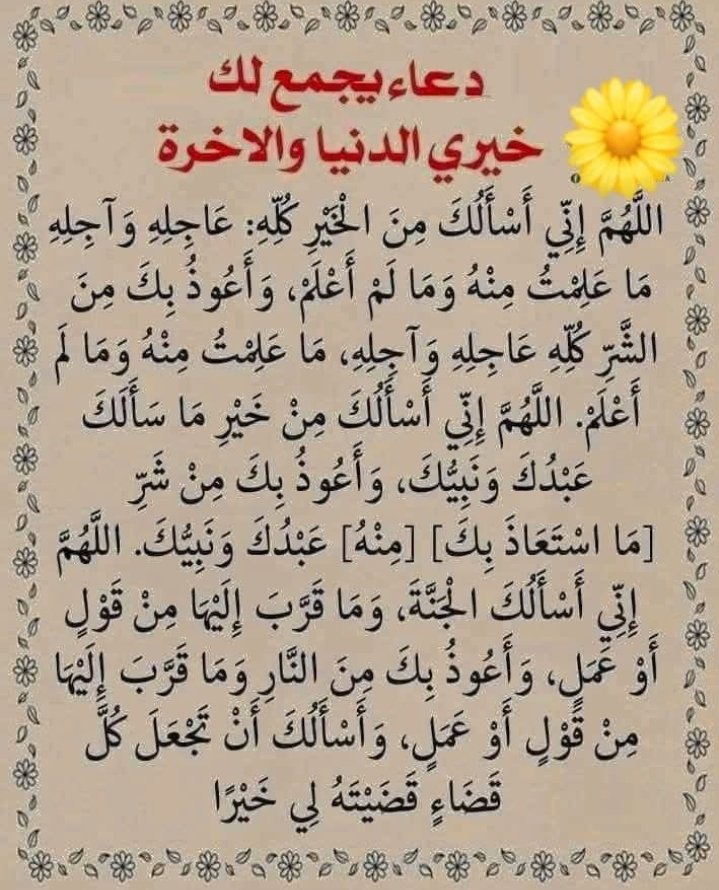 دعاء يجمع لك
خيري الدنيا والاخرة
اللَّهُمَّ إِنِّي أَسْأَلُكَ مِنَ الْخَيْرِ كُلِّهِ: عَاجِلِهِ وَآجِلِهِ
مَا عَلِمْتُ مِنْهُ وَمَا لَمْ أَعْلَمْ، وَأَعُوذُ بِكَ مِنَ
الشَّرِّ كُلِّهِ عَاجِلِهِ وَآجِلِهِ، مَا عَلِمْتُ مِنْهُ وَمَا لَم
أَعْلَمْ. اللَّهُمَّ إِنِّي أَسْأَلُكَ مِنْ خَيْرِ مَا سَأَلَكَ
عَبْدُكَ وَنَبِيُّكَ، وَأَعُوذُ بِكَ مِنْ شَرِّ
[مَا اسْتَعَاذَ بِكَ] [مِنْهُ] عَبْدُكَ وَنَبِيُّكَ. اللَّهُمَّ
إِنِّي أَسْأَلُكَ الْجَنَّةَ، وَمَا قَرَّبَ إِلَيْهَا مِنْ قَوْلٍ
أَوْ عَمَلٍ، وَأَعُوذُ بِكَ مِنَ النَّارِ وَمَا قَرَّبَ إِلَيْهَا
مِنْ قَوْلٍ أَوْ عَمَلٍ، وَأَسْأَلُكَ أَنْ تَجْعَلَ كُلَّ
قَضَاءٍ قَضَيْتَهُ لِي خَيْرًا